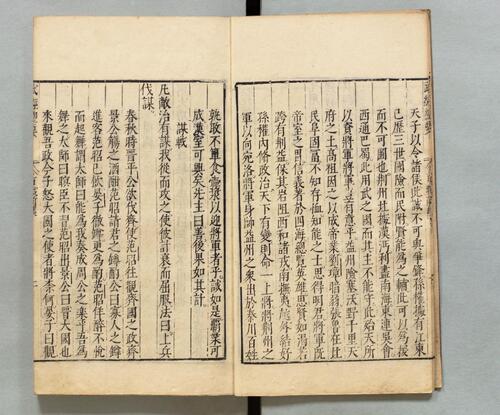 天子以令諸侯此誠不可與爭鋒孫權據有江東
已歷三世國險而民附賢能爲之輔此可以爲援
而不可圖也荆州北據漢沔利盡南海東連吳會
西通巴蜀此用武之國而其主不能守此殆天所
以資將軍將軍豈有意乎益州險塞沃野千里天
府之土高祖因之以成帝業劉璋暗弱張魯在北
民阜國富不知存恤知能之士思得明君將軍旣
帝室之胄信義著於四海總覽英雄思賢如渴若
跨有荆益保其岩阻西和諸戎南撫夷越外結好
孫權內修政治天下有變則命一上將將荆州之
軍以向宛洛將軍身帥益州之衆出於秦川百姓
孰敢不簞食壺漿以迎將軍者乎誠如是霸業可
成漢室可興矣先主曰善後果如其計
謀戰
凡敵治有謀我從而攻之使彼計衰而屈服法曰上兵
伐謀
春秋時晉平公欲伐齊使范昭往觀齊國之政齊
景公觴之酒酣范昭請君之罇酌公曰寡人之罇
進客范昭已飲晏子徹罇更爲酌范昭佯醉不悅
而起舞謂太師曰能爲我奏成周公之樂乎吾爲
舞之太師曰瞑臣不習范昭出景公曰晉大國也
來觀吾政今子怒大國之使者將柰何晏子曰觀